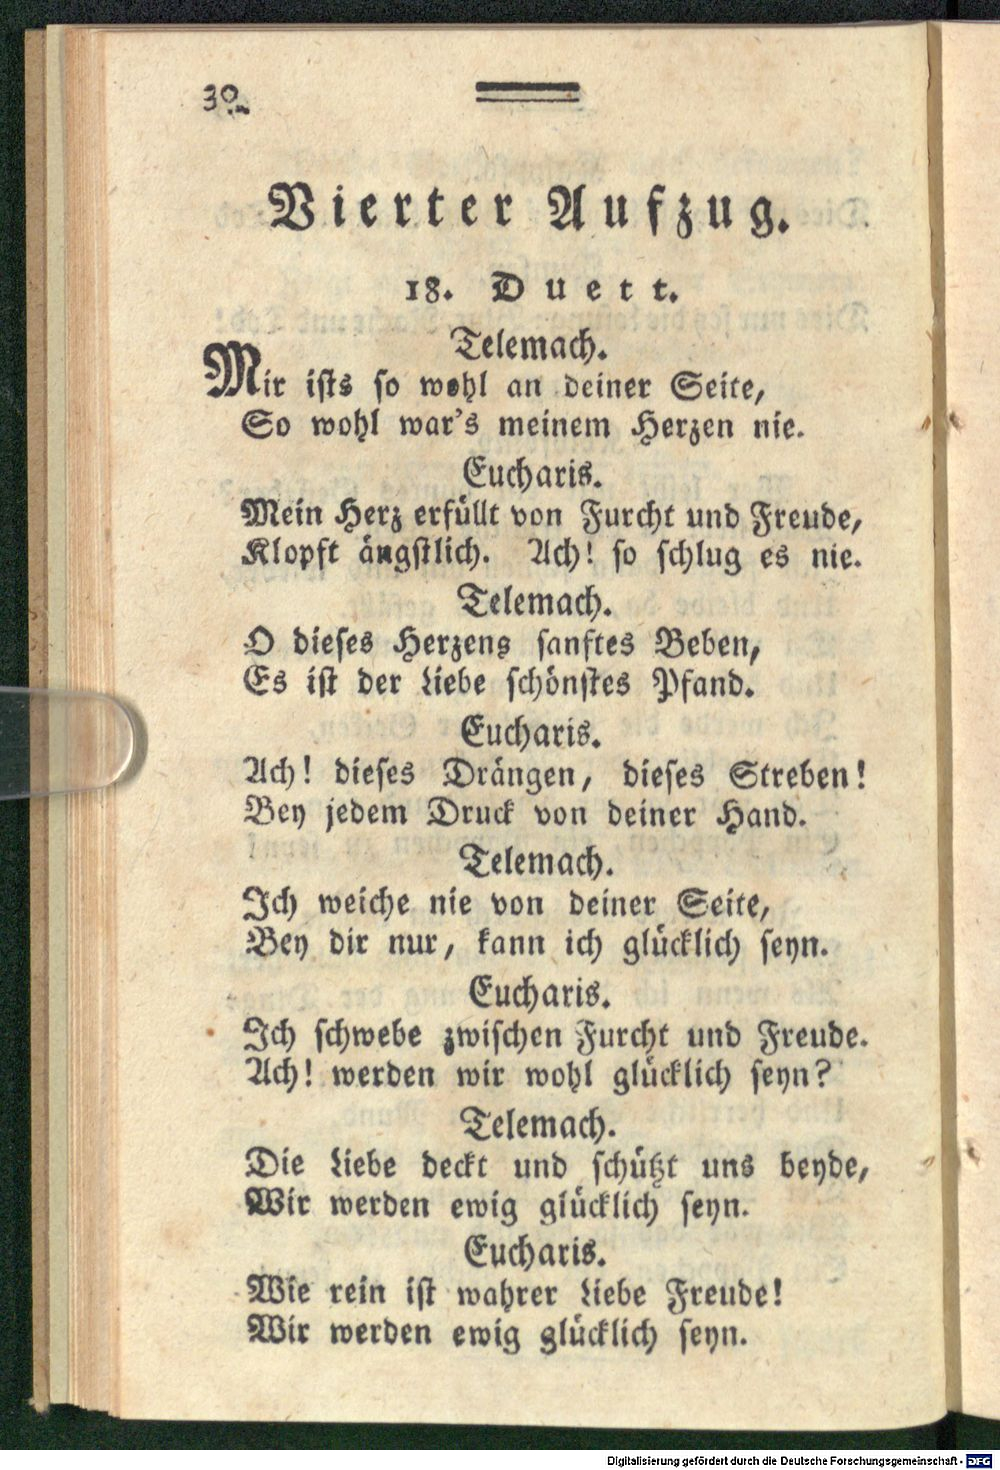 30
Vierter Aufzug.
18. Duett.
Telemach.
Mir ists so wohl an deiner Seite,
So wohl war's meinem Herzen nie.
Eucharis.
Mein Herz erfüllt von Furcht und Freude,
Klopft ängstlich. Ach! so schlug es nie.
Telemach.
O dieses Herzens sanftes Beben,
Es ist der Liebe schönstes Pfand.
Eucharis.
Ach! dieses Drängen, dieses Streben!
Bey jedem Druck von deiner Hand.
Telemach.
Ich weiche nie von deiner Seite,
Bey dir nur, kann ich glücklich seyn.
Eucharis.
Ich schwebe zwischen Furcht und Freude.
Ach! werden wir wohl glücklich seyn?
Telemach.
Die Liebe deckt und schützt uns beyde,
Wir werden ewig glücklich seyn.
Eucharis.
Wie rein ist wahrer Liebe Freude!
Wir werden ewig glücklich seyn.
Digitalisierung gefördert durch die Deutsche Forschungsgemeinschaft - DFG